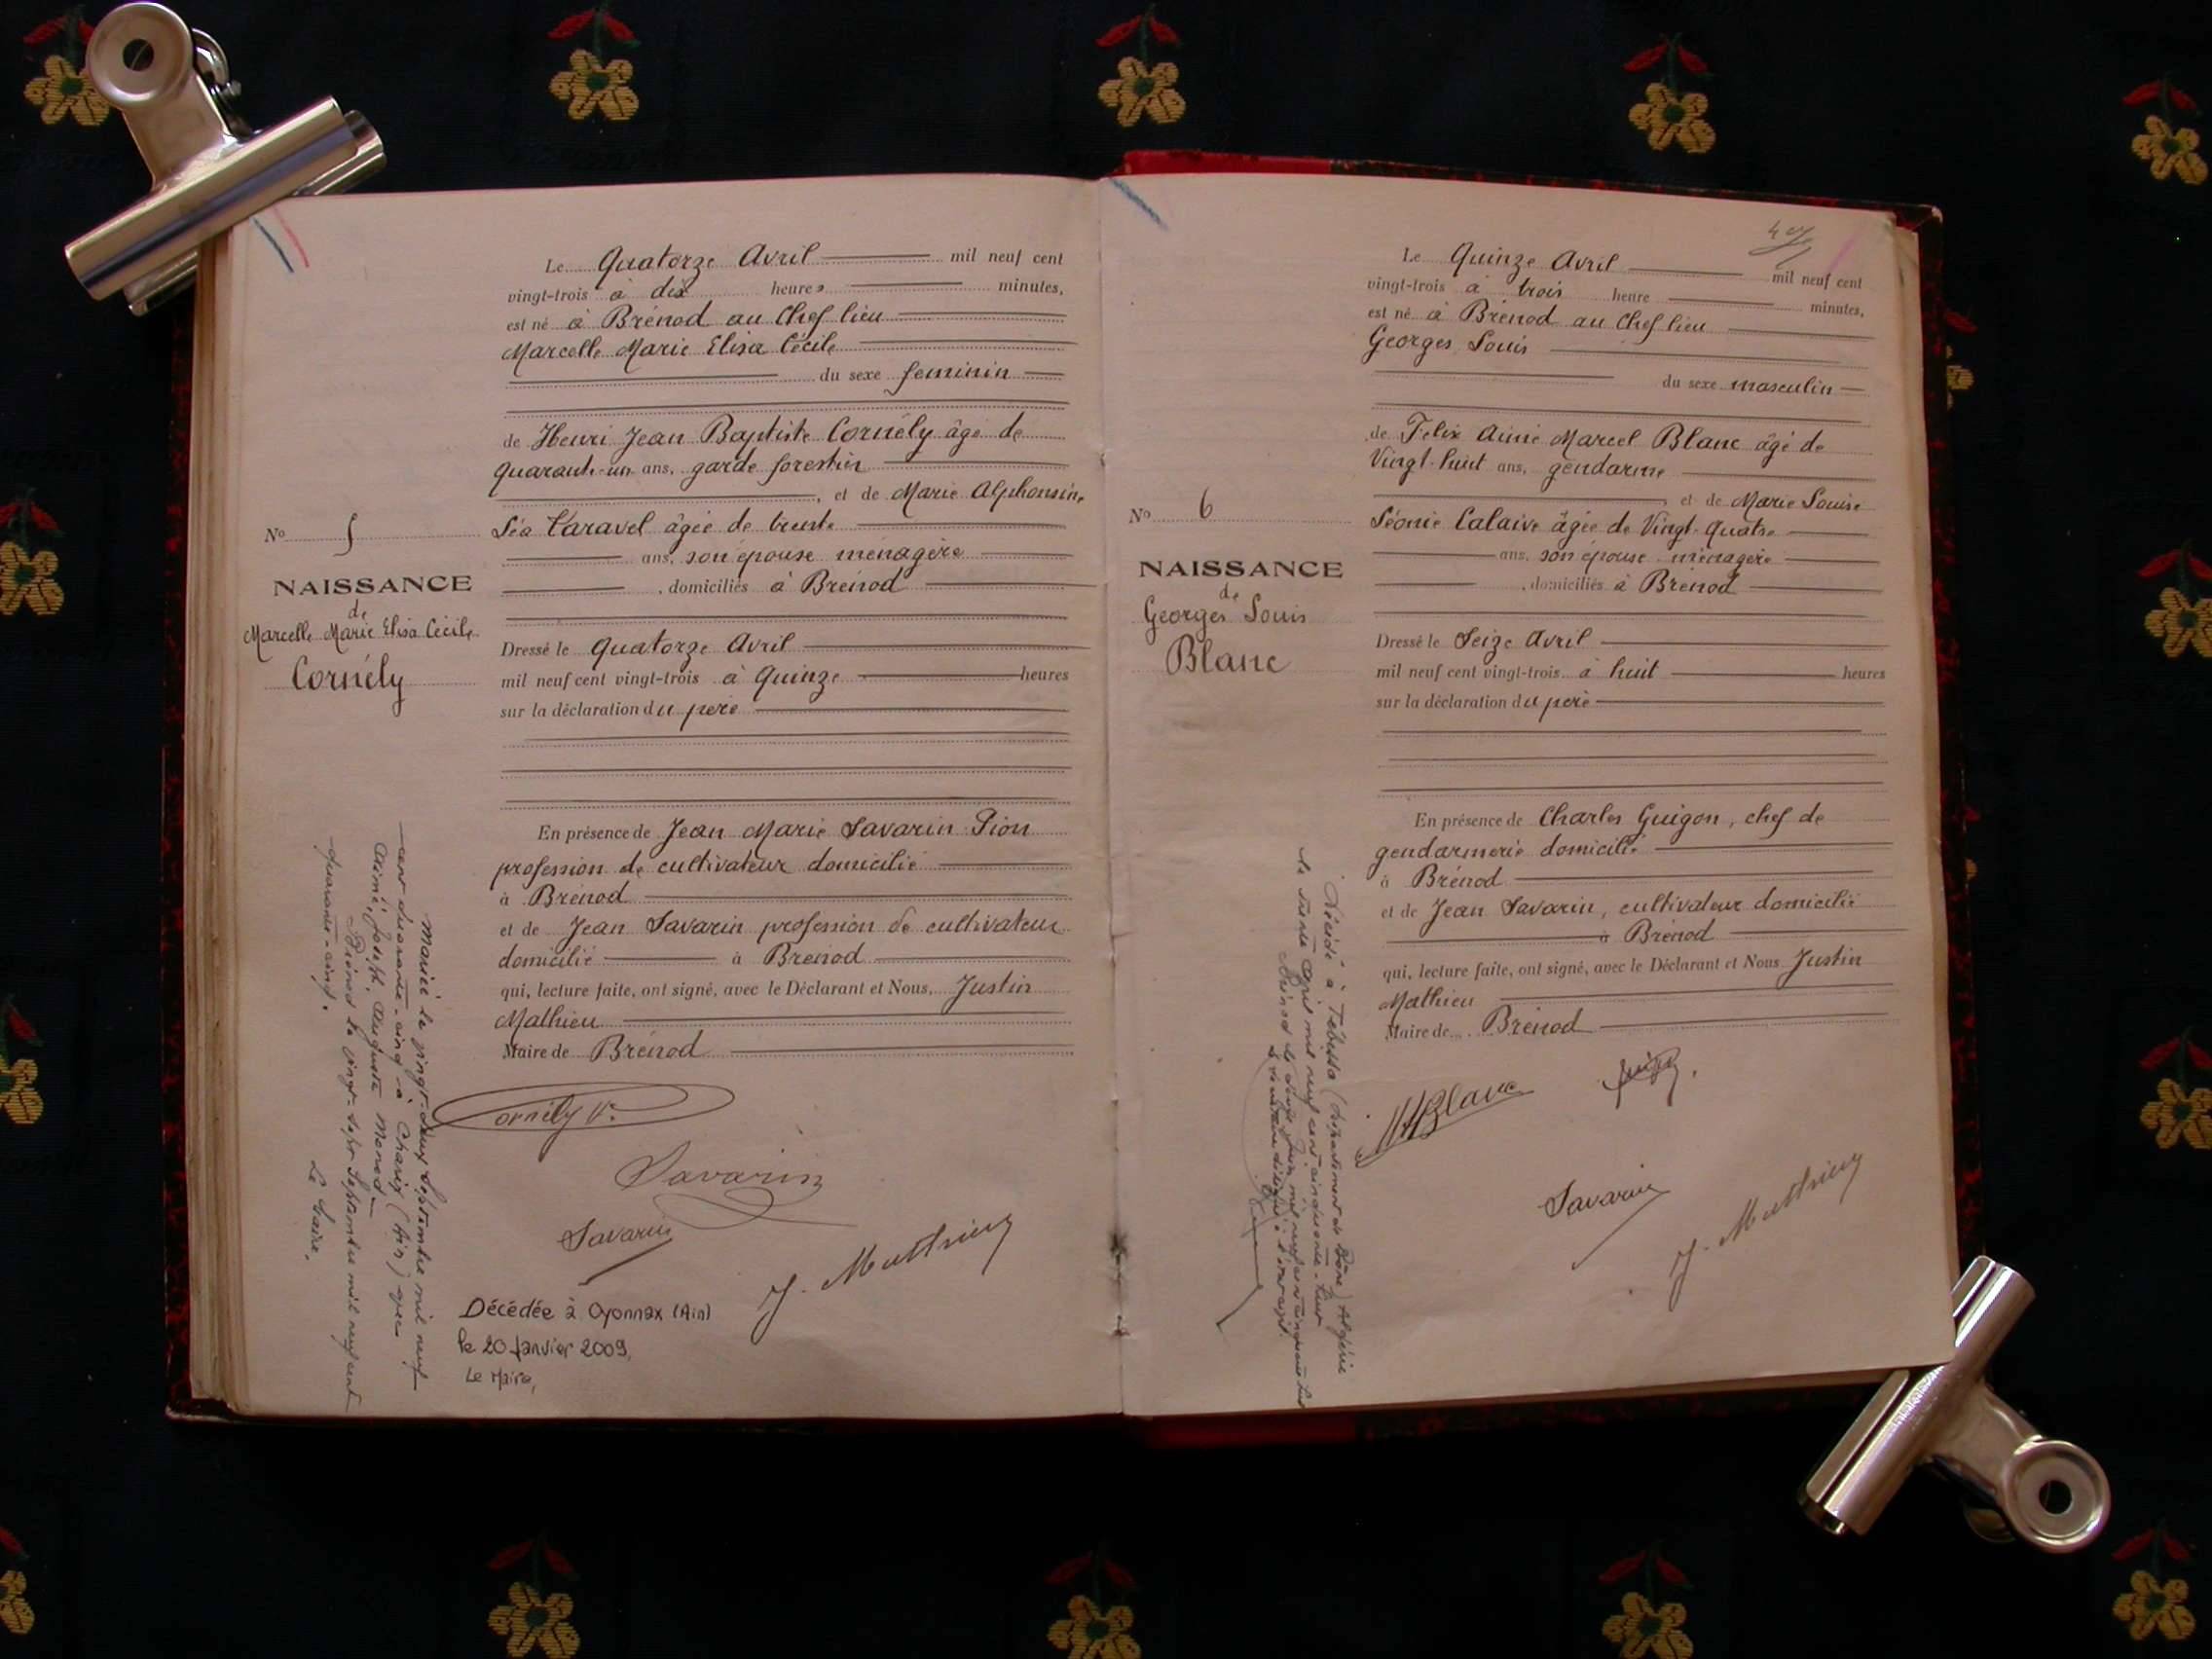 Le Quatorze Avril mil neuf cent
vingt-trois à dix heures minutes,
est né à Brénod au Chef lieu
Marcelle Marie Elisa Cécile
du sexe feminin
de Henri Jean Baptiste Cornély âgé de
quarante-un ans, garde forestier
, et de Marie Alphonsine
Léa Caravel âgée de trente
ans, son épouse ménagère
, domiciliés à Brénod
Dressé le Quatorze Avril
mil neuf cent vingt-trois à Quinze heures
sur la déclaration du père
En présence de Jean Marie Savarin Pion
profession de cultivateur domicilié
à Brénod
et de Jean Savarin profession de cultivateur
domicilié à Brénod
qui, lecture faite, ont signé, avec le Déclarant et Nous, Justin
Mathieu
Maire de Brénod
No 5
NAISSANCE
de
Marcelle Marie Elisa Cécile
Cornély
Mariée le vingt-deux Septembre mil neuf
cent quarante-cinq à Charix (Ain) avec
Aimé, Joseph, Auguste Monod
Brénod le vingt-sept Septembre mil neuf cent
quarante-cinq.
Le Maire,
Cornély
Savarin
Savarin
J. Mathieu
Décédée à Oyonnax (Ain)
le 20 Janvier 2009,
Le Maire,
Le Quinze Avril mil neuf cent
vingt-trois à trois heure minutes,
est né à Brénod au Chef lieu
Georges Louis
du sexe masculin
de Felix Aimé Marcel Blanc âgé de
Vingt-huit ans, gendarme
, et de Marie Louise
Léonie Calaive âgée de Vingt-quatre
ans, son épouse ménagère
, domiciliés à Brénod
Dressé le Seize Avril
mil neuf cent vingt-trois à huit heures
sur la déclaration du père
En présence de Charles Guigon, chef de
gendarmerie domicilié
à Brénod
et de Jean Savarin, cultivateur domicilié
à Brénod
qui, lecture faite, ont signé, avec le Déclarant et Nous Justin
Mathieu
Maire de Brénod
No 6
NAISSANCE
de
Georges Louis
Blanc
Décédé à Tébessa (département de Bône) Algérie
le trente Avril mil neuf cent cinquante-huit
Brénod le Juin mil neuf cent cinquante huit
Blanc
Savarin
J. Mathieu